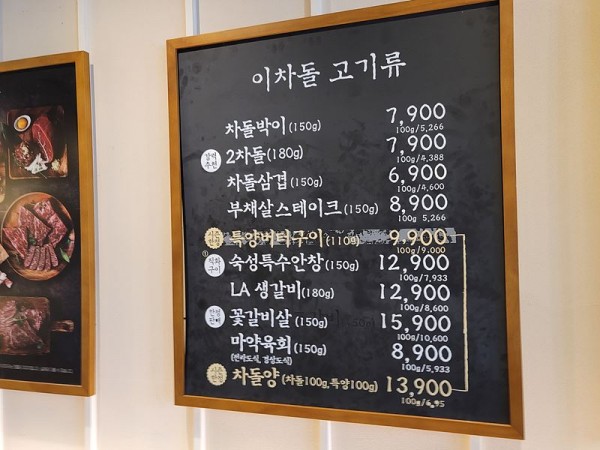 이차돌 고기류
차돌박이 (150g) 7,900
100g/5,266
2차돌 (180g) 7,900
100g/4,388
차돌삼겹 (150g) 6,900
100g/4,600
부채살스테이크 (150g) 8,900
100g 5,266
특양버터구이 (110g) 9,900
100g/9,000
숙성특수안창 (150g) 12,900
100g/7,933
LA 생갈비 (180g) 12,900
100g/8,600
꽃갈비살 (150g) 15,900
100g/10,600
마약육회 (150g) 8,900
(전라도식, 경상도식) 100g/5,933
차돌양 (차돌100g, 특양100g) 13,900
100g/6,95